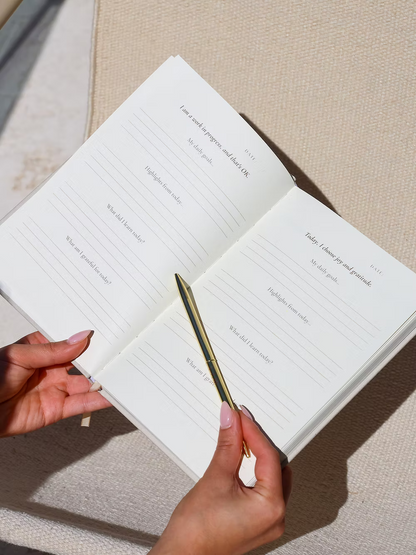 DATE
I am a work in progress, and that's OK.
My daily goals.
Highlights from today.
What did I learn today?
What am I grateful for today?
DATE
Today, I choose joy and gratitude.
My daily goals.
Highlights from today.
What did I learn today?
What am I